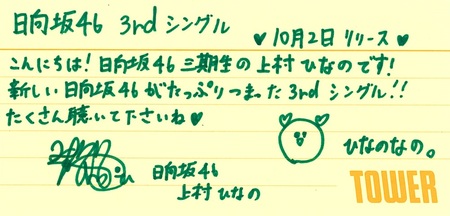 日向坂46 3rd シングル
♥ 10月2日 リリース ♥
こんにちは! 日向坂46 三期生の 上村 ひなのです!
新しい 日向坂46 がたっぷりつまった 3rd シングル!!
たくさん 聴いて下さいね♥
ひなのなの。
日向坂46
上村 ひなの
TOWER